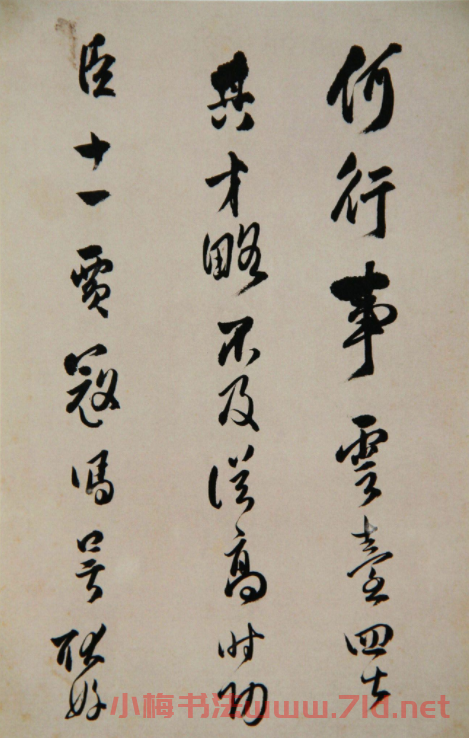 何行事雲臺四七
其才略不及從高時功
臣十一賈寇馮吳耿好
小梅书法www.7ld.net